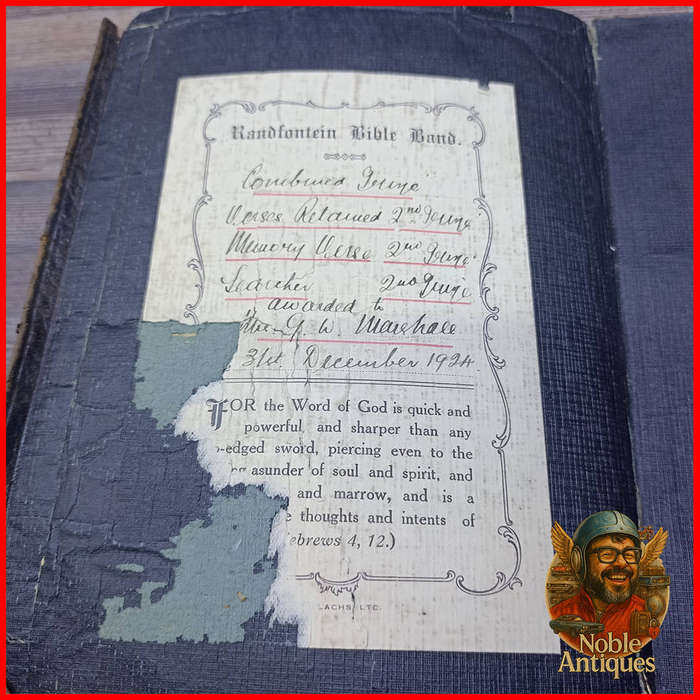 Randfontein Bible Band.
Combined
Verses Retained 2nd
Memory Verse 2nd
Searcher 2nd
awarded to
G. W. Marshall
31st December 1924.
FOR the Word of God is quick and
powerful, and sharper than any
-edged sword, piercing even to the
asunder of soul and spirit, and
and marrow, and is a
thoughts and intents of
ebrews 4, 12.)
LACHS, LTD.
Noble
Antiques